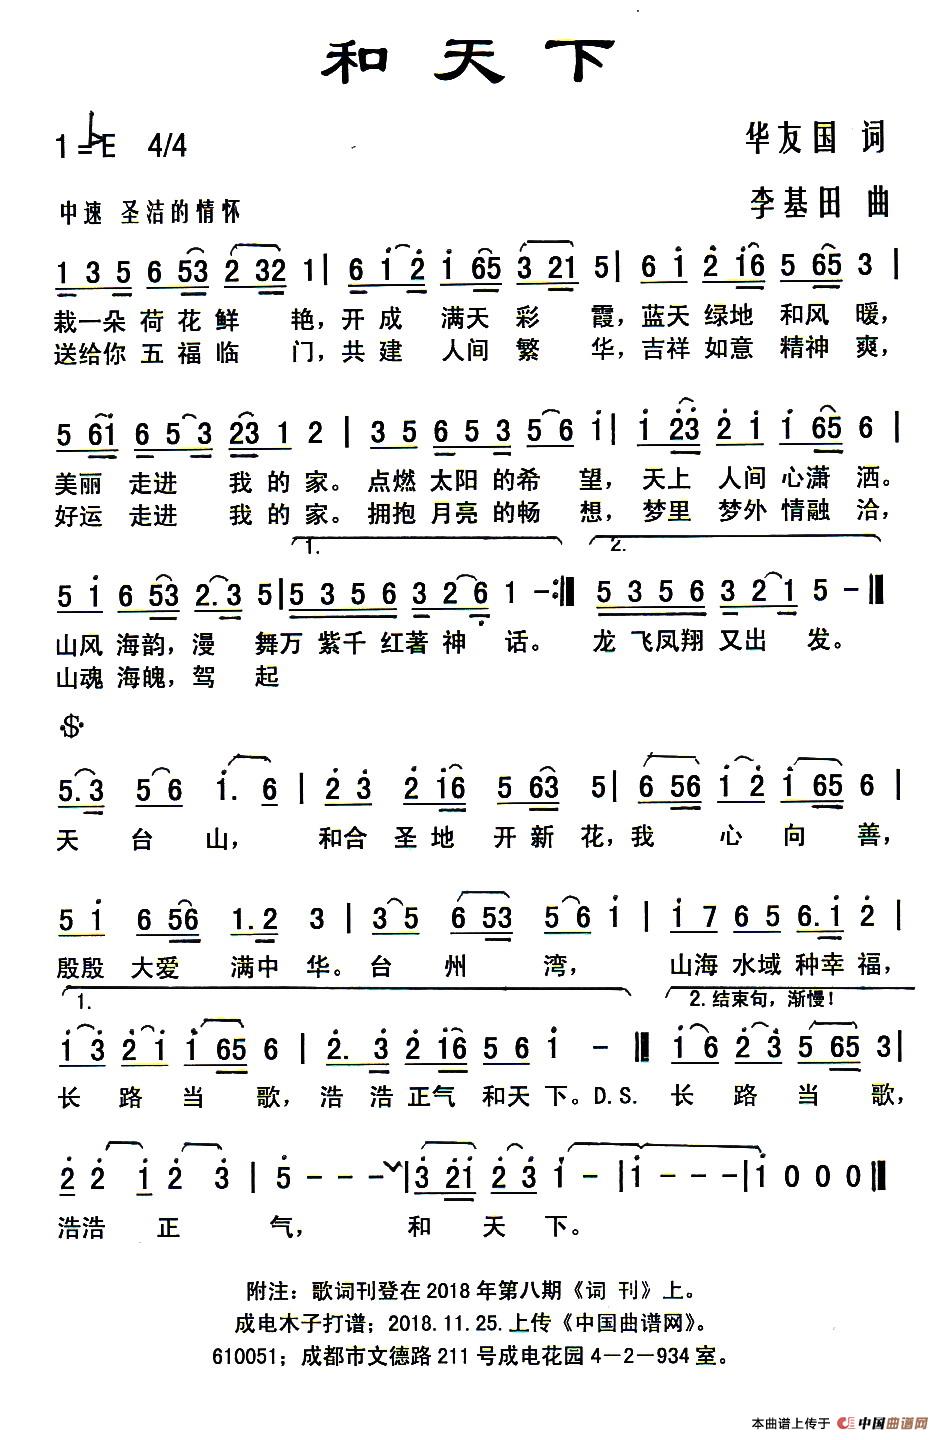 和天下
1=♭E 4/4
华友国 词
中速 圣洁的情怀
李基田 曲
1 3 5 6 53 2 32 1 | 6 1 2 1 65 3 21 5 | 6 1 2 16 5 65 3 |
栽一朵 荷 花 鲜 艳,开 成 满天 彩 霞,蓝天 绿地 和风 暖,
送给你 五 福 临 门,共 建 人间 繁 华,吉祥 如意 精神 爽,
5 61 6 5 3 23 1 2 | 3 5 6 5 3 5 6 1 | 1 23 2 1 1 65 6 |
美丽 走进 我 的 家。点燃 太阳 的希 望,天上 人间 心潇 洒。
好运 走进 我 的 家。拥抱 月亮 的畅 想,梦里 梦外 情融 洽,
1. 2.
5 1 6 53 2.3 5 | 5 3 5 6 3 2 6 1 - :‖ 5 3 5 6 3 2 1 5 - ‖
山风 海韵,漫 舞万 紫千 红著 神 话。 龙 飞凤翔 又出 发。
山魂 海魄,驾 起
5.3 5 6 1. 6 | 2 3 2 16 5 63 5 | 6 56 1 2 1 65 6 |
天 台 山, 和合 圣 地 开 新 花,我 心 向 善,
5 1 6 56 1.2 3 | 3 5 6 53 5 6 1 | 1 7 6 5 6.1 2 |
殷殷 大爱 满中 华。台 州 湾, 山海 水域 种幸 福,
1. 2.结束句,渐慢!
1 3 2 1 1 65 6 | 2. 3 2 16 5 6 1 - ‖ 1 6 2 3 5 65 3 |
长 路 当 歌,浩 浩 正气 和天 下。D.S. 长 路 当 歌,
2 2 1 2 3 | 5 - - - | 3 21 2 3 1 - | 1 - - - | 1 0 0 0 ‖
浩浩 正 气, 和 天 下。
附注:歌词刊登在2018年第八期《词 刊》上。
成电木子打谱;2018.11.25.上传《中国曲谱网》。
610051;成都市文德路211号成电花园4－2－934室。
本曲谱上传于 中国曲谱网